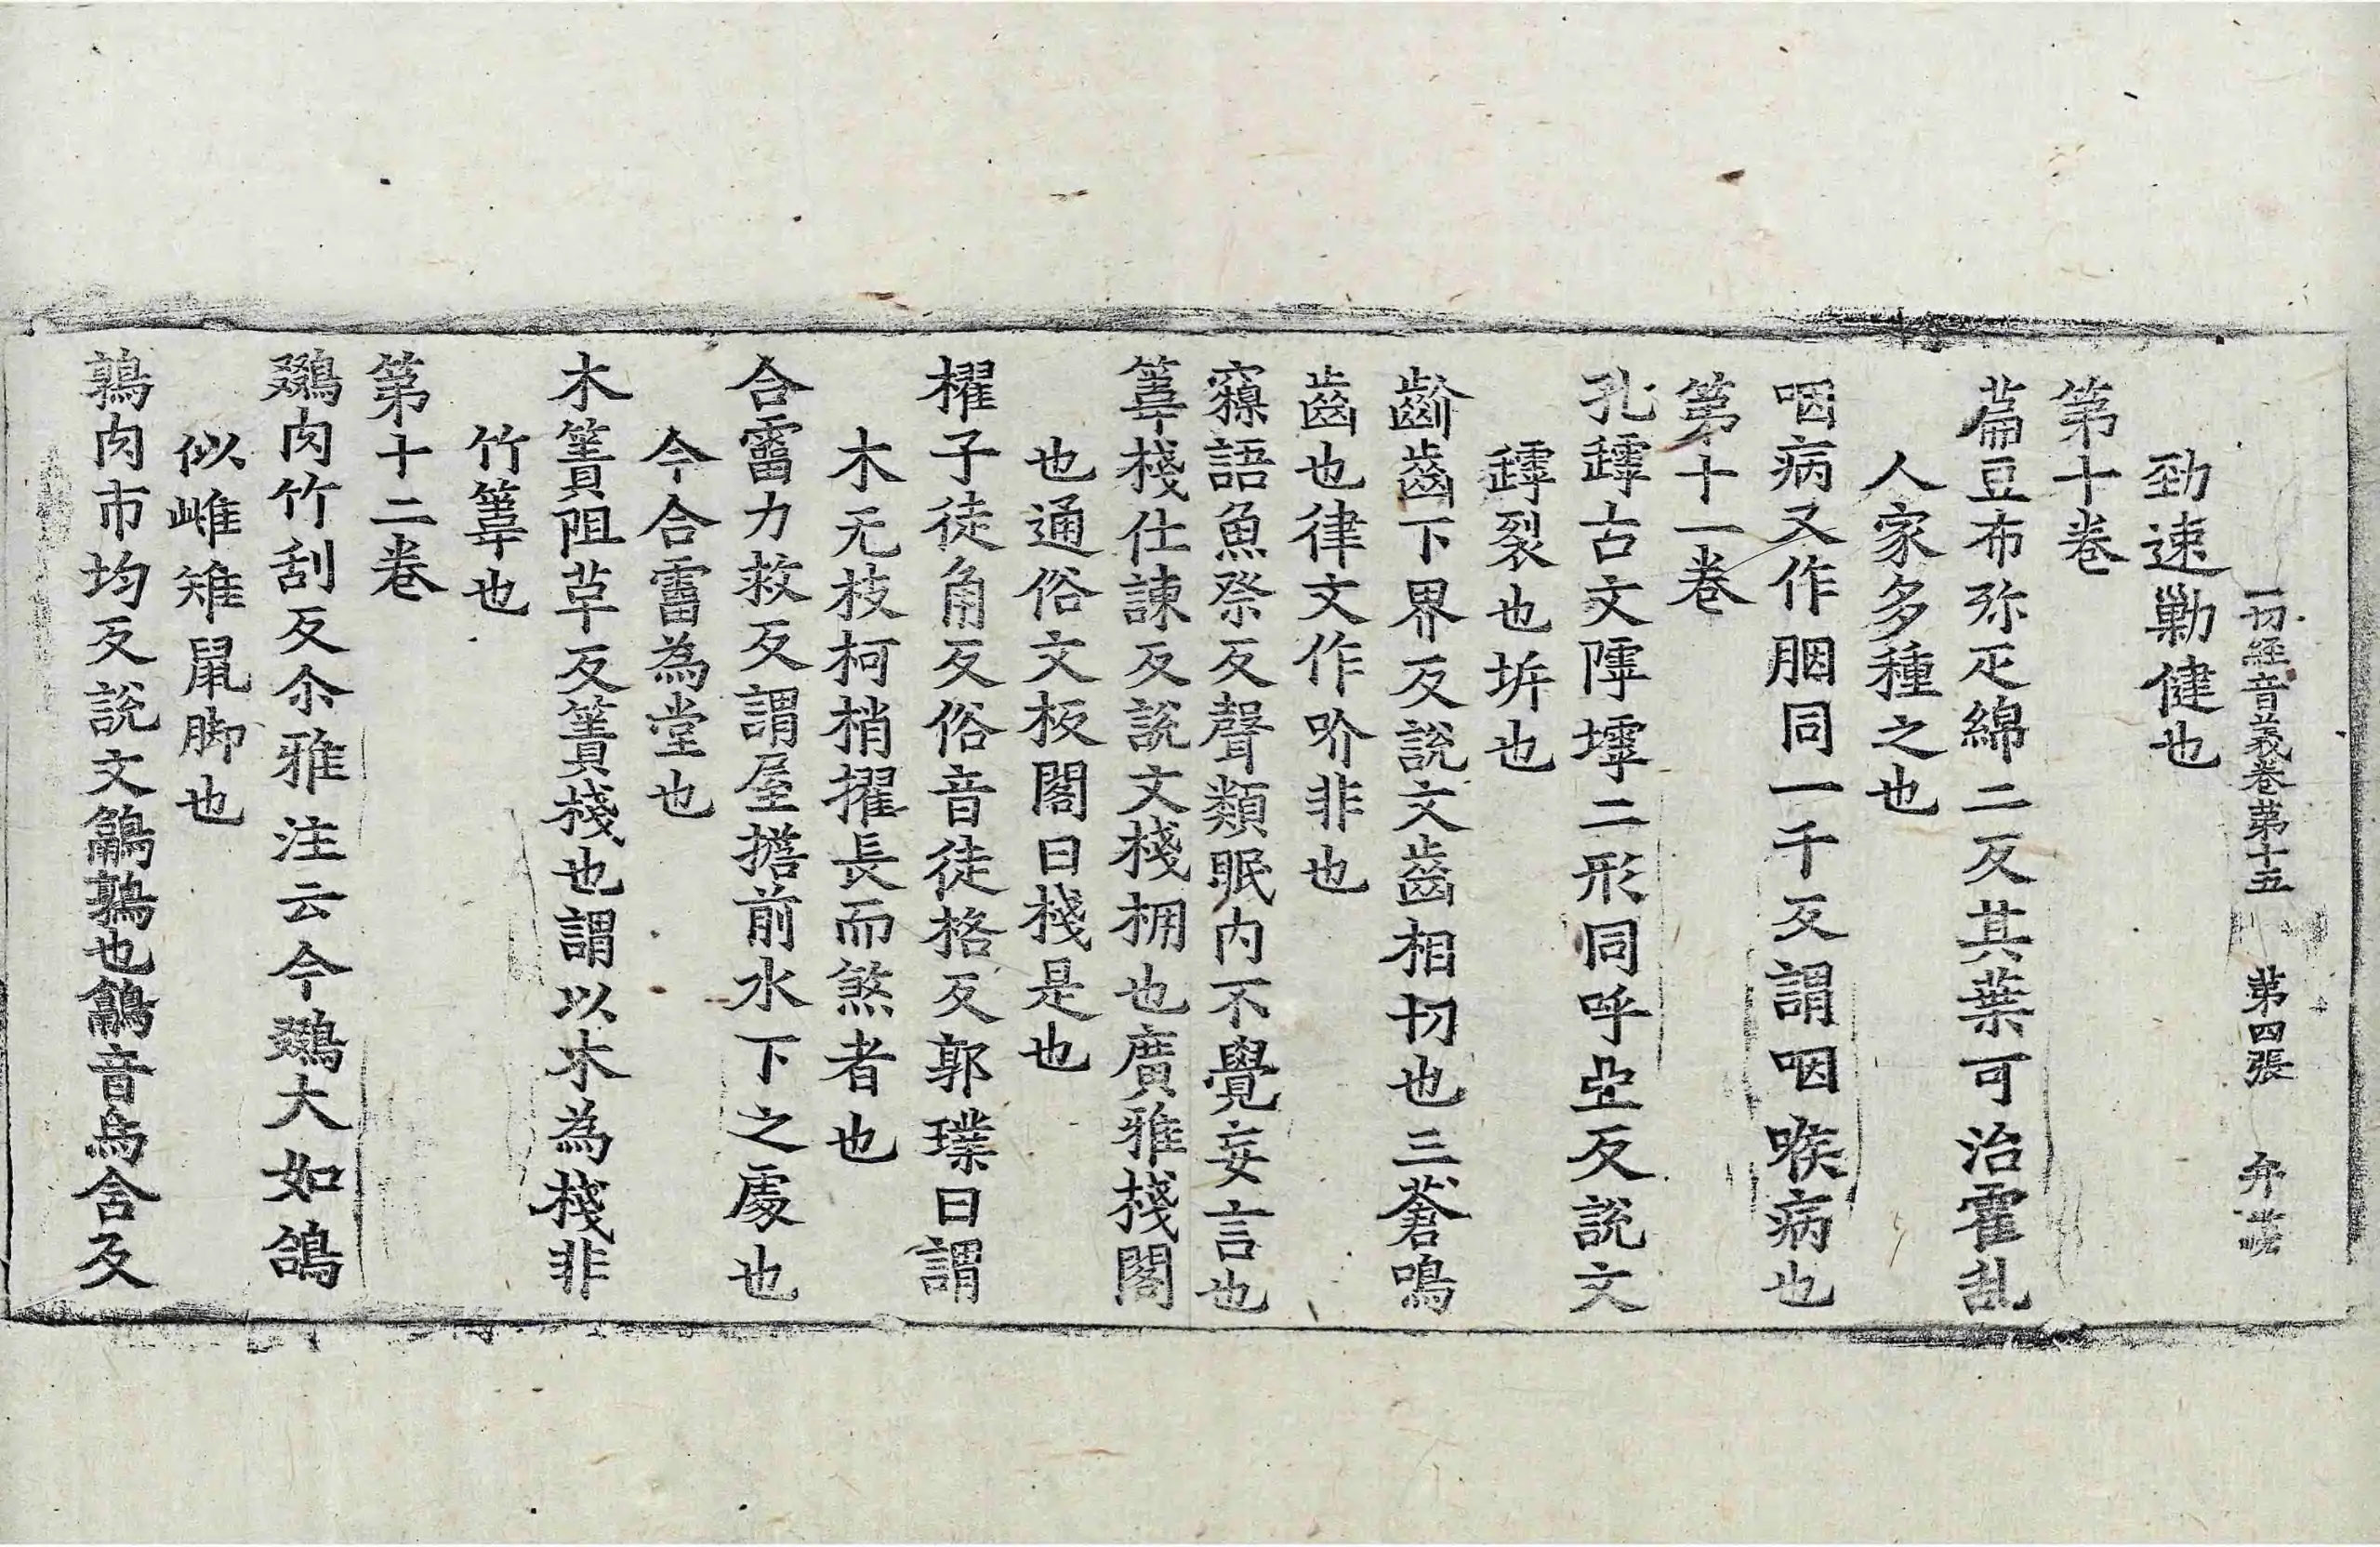 一切經音義卷第十五 第四張 弁
勁速勦健也
第十卷
萹豆布弥疋綿二反其葉可治霍乱
人家多種之也
咽病又作胭同一千反謂咽喉病也
第十一卷
孔罅古文㙤墟二形同呼亞反說文
罅裂也坼也
齘齒下界反說文齒相切也三蒼鳴
齒也律文作吤非也
寱語魚祭反聲類眠內不覺妄言也
䈾棧仕諫反說文棧棚也廣雅棧閣
也通俗文板閣曰棧是也
櫂子徒角反俗音徒格反郭璞曰謂
木无枝柯梢擢長而煞者也
合霤力救反謂屋擔前水下之處也
今合霤為堂也
木簀阻革反簀棧也謂以木為棧非
竹䈾也
第十二卷
鵽肉竹刮反尒雅注云今鵽大如鴿
似雌雉鼠脚也
鶉肉市均反說文鶕鶉也鶕音烏含反